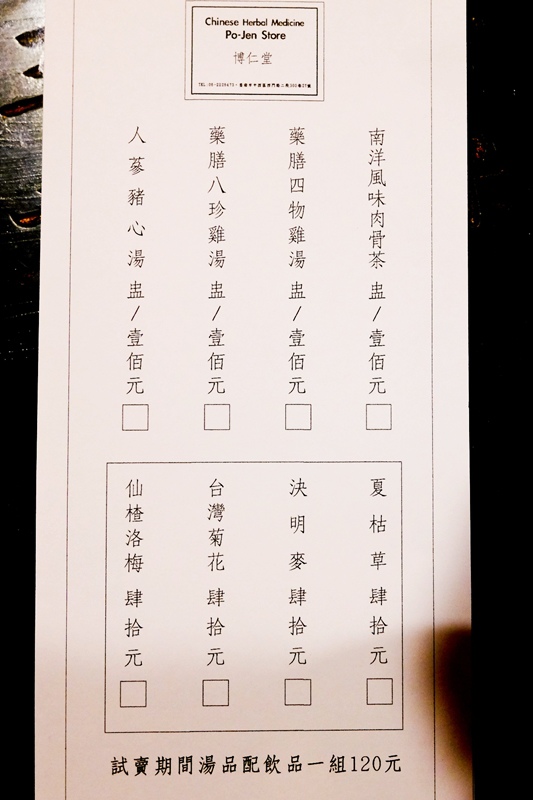 Chinese Herbal Medicine
Po-Jen Store
博仁堂
南洋風味肉骨茶 盅/壹佰元
藥膳四物雞湯 盅/壹佰元
藥膳八珍雞湯 盅/壹佰元
人蔘豬心湯 盅/壹佰元
夏枯草 肆拾元
決明麥 肆拾元
台灣菊花 肆拾元
仙楂洛梅 肆拾元
試賣期間湯品配飲品一組120元